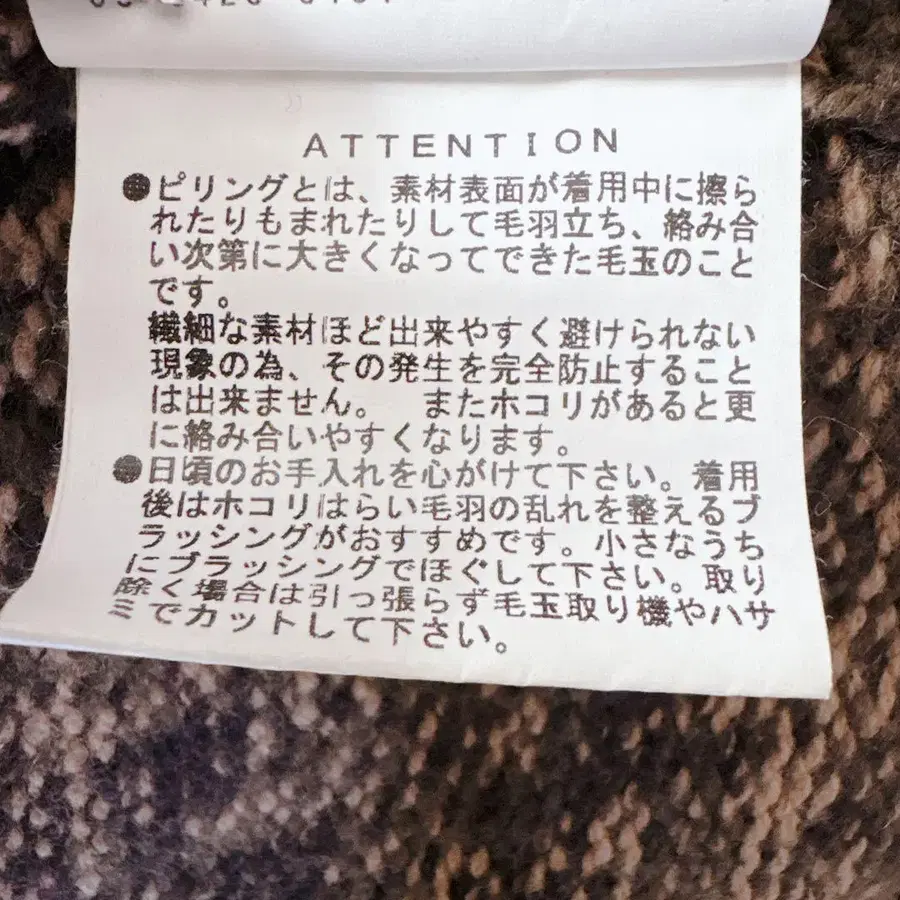 ATTENTION
●ピリングとは、素材表面が着用中に擦ら
れたりもまれたりして毛羽立ち、絡み合
い次第に大きくなってできた毛玉のこと
です。
繊細な素材ほど出来やすく避けられない
現象の為、その発生を完全防止すること
は出来ません。 またホコリがあると更
に絡み合いやすくなります。
●日頃のお手入れを心がけて下さい。着用
後はホコリはらい毛羽の乱れを整えるブ
ラッシングがおすすめです。小さなうち
にブラッシングでほぐして下さい。取り
除く場合は引っ張らず毛玉取り機やハサ
ミでカットして下さい。